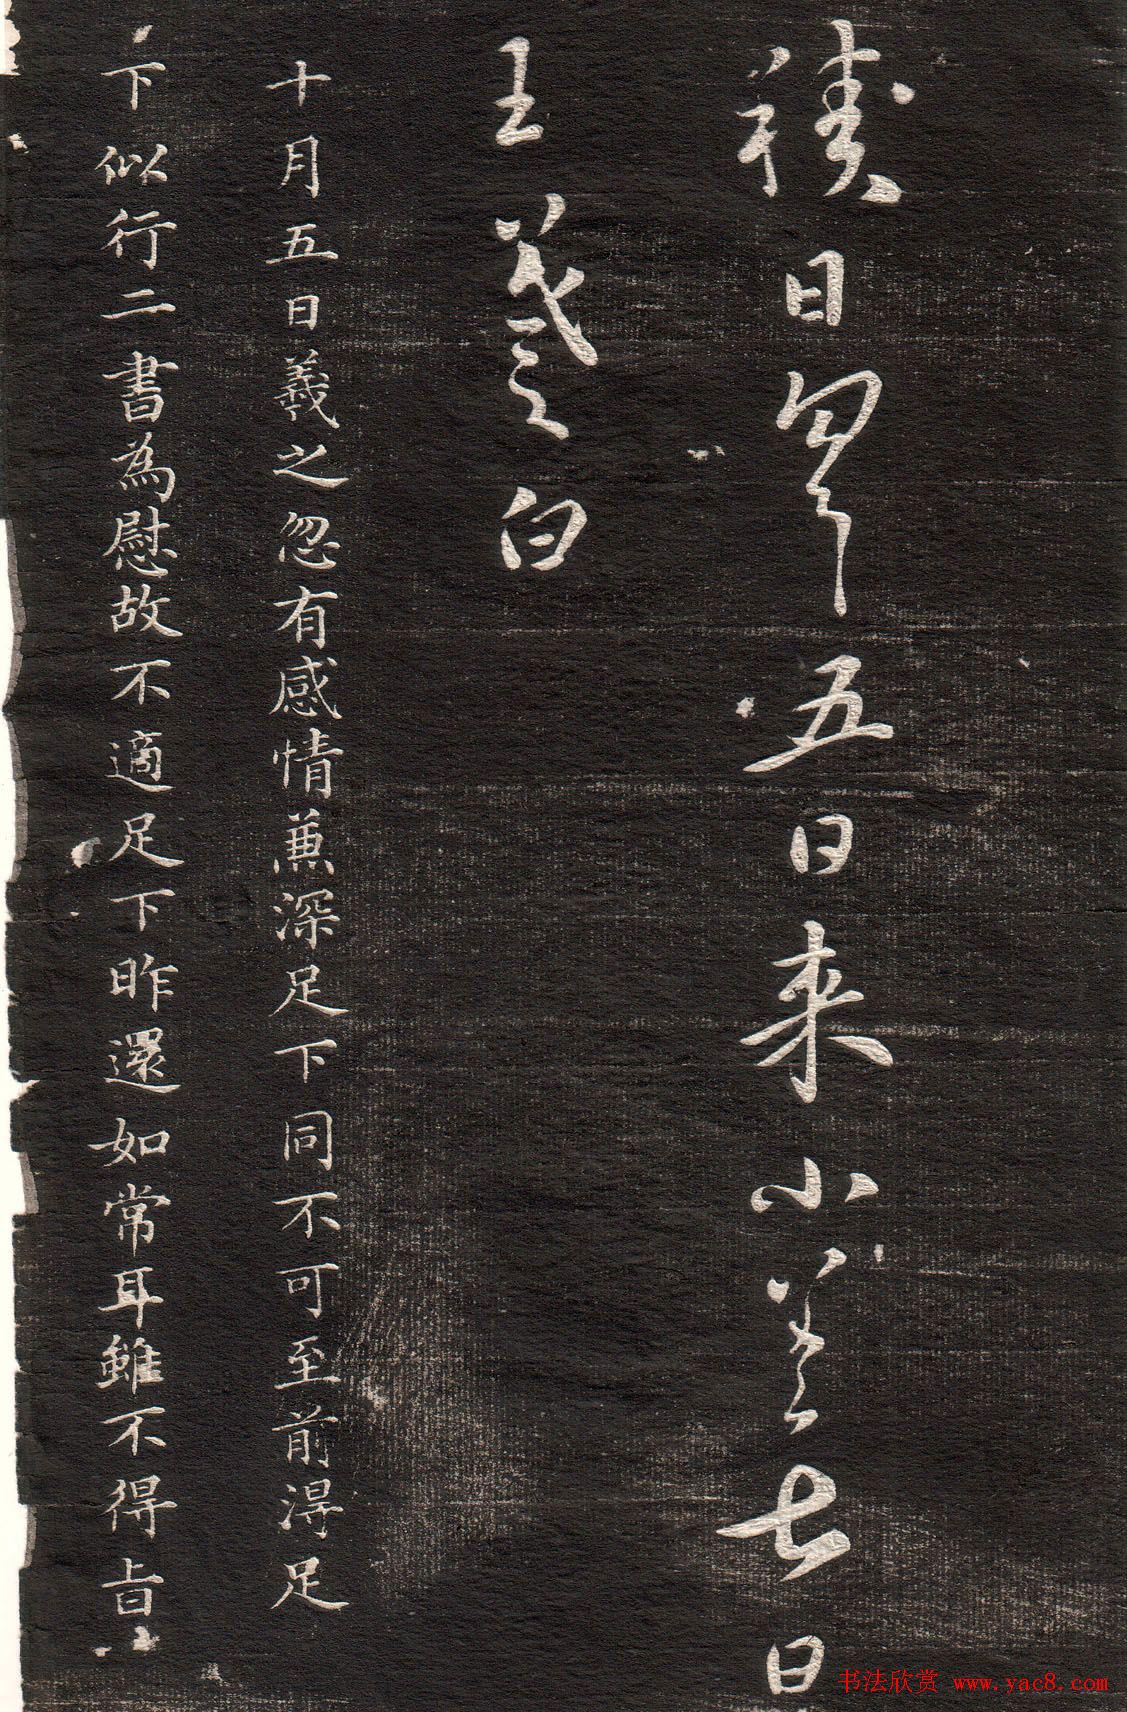 日
五日来小差
日
王羲白
十月五日羲之忽有感情兼深足下同不可至前淂足
下似行二書為慰故不適足下昨還如常耳雖不得旨
书法欣赏 www.yac8.com